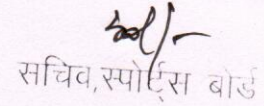 sd/-
सचिव, स्पोर्ट्स बोर्ड